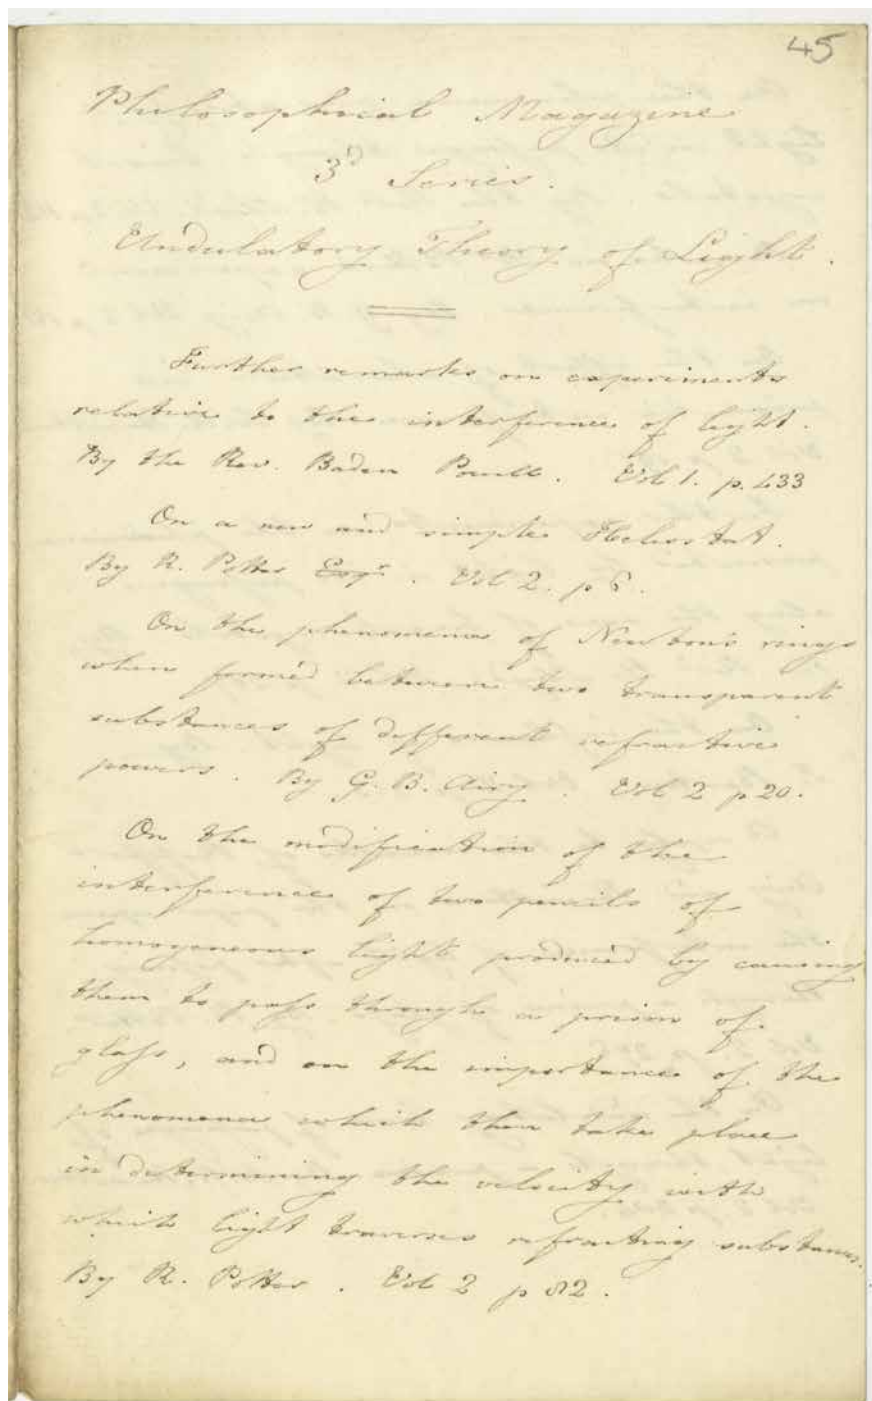 45
Philosophical Magazine
3d Series.
Undulatory Theory of Light.
Further remarks on experiments
relative to the interference of light.
By the Rev. Baden Powell. Vol 1. p. 433
On a new and simple Heliostat.
By R. Potter Esqr. Vol 2. p 6.
On the phenomena of Newton's rings
when formed between two transparent
substances of different refractive
powers. By G. B. Airy. Vol 2 p 20.
On the modification of the
interference of two pencils of
homogeneous light produced by causing
them to pass through a prism of
glass, and on the importance of the
phenomena which then take place
in determining the velocity with
which light traverses refracting substances.
By R. Potter. Vol 2 p 82.